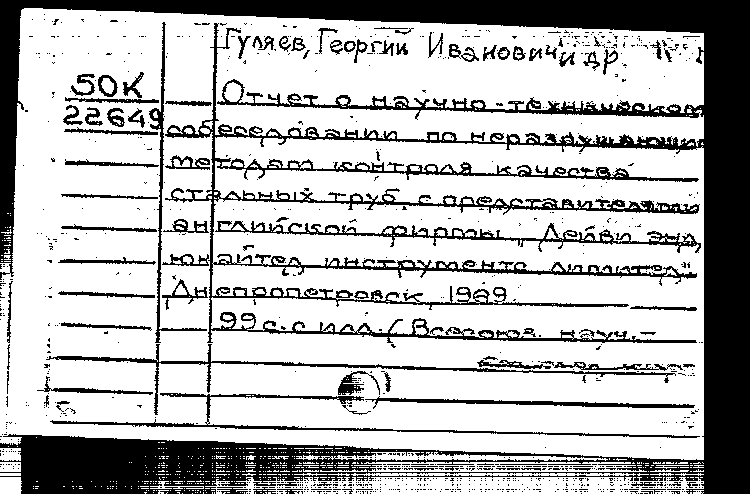 Гуляев, Георгий Иванович и др
50К
22649
Отчет о научно-техническом
собеседовании по неразрушающим
методам контроля качества
стальных труб с представителями
английской фирмы „Дейви энд
юнайтед инструментс лимитед"
Днепропетровск, 1969.
99 с. с илл. (Всесоюз. науч.-